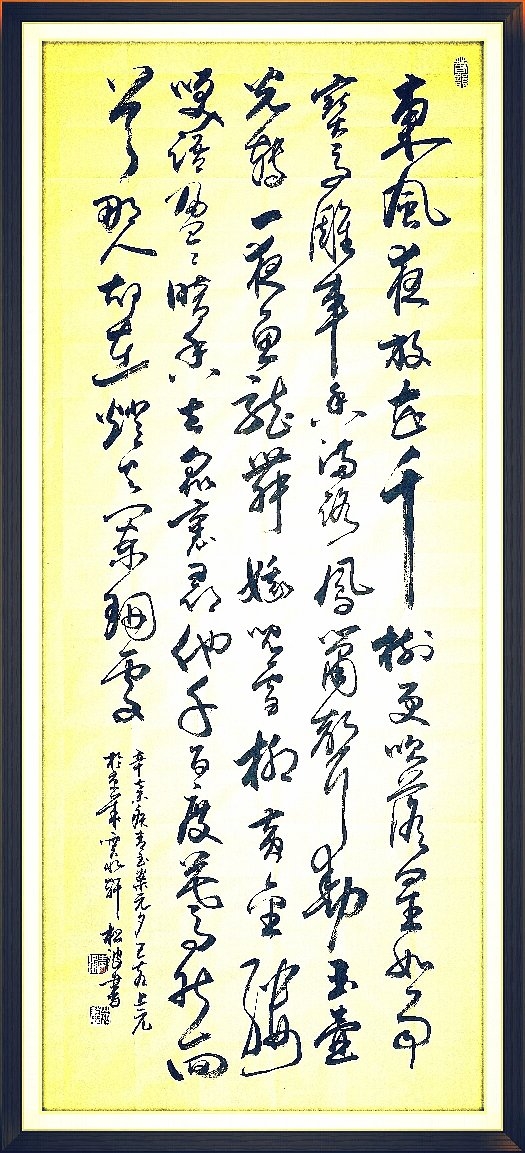 東風夜放花千樹更吹落星如雨
寶馬雕車香滿路鳳簫聲動玉壺
光轉一夜魚龍舞蛾兒雪柳黃金縷
笑語盈々暗香去眾裏尋他千百度驀然回
首那人却在燈火闌珊處
辛棄疾青玉案元夕己亥上元
於京華雲軒 松波書